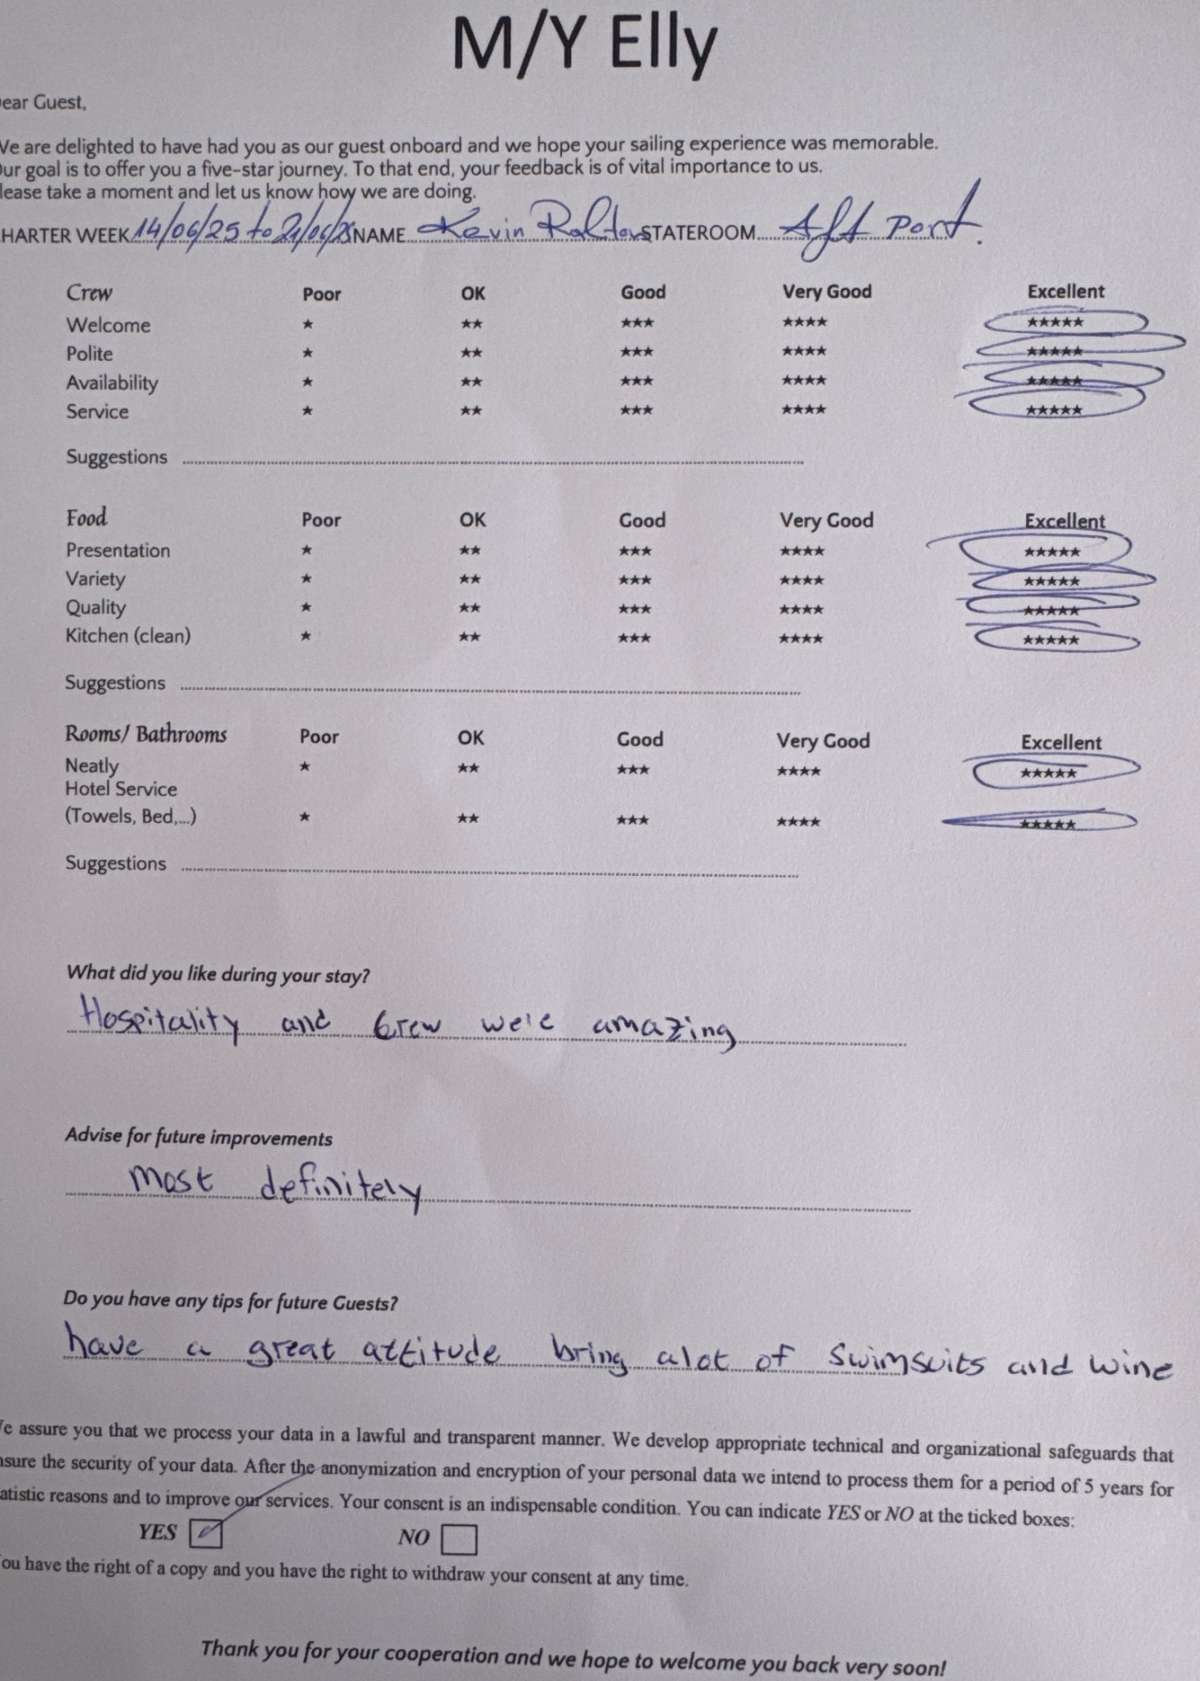 M/Y Elly
ear Guest,
We are delighted to have had you as our guest onboard and we hope your sailing experience was memorable.
Our goal is to offer you a five-star journey. To that end, your feedback is of vital importance to us.
lease take a moment and let us know how we are doing.
HARTER WEEK 14/06/25 to 21/06/25 NAME Kevin STATEROOM Aft Port.
Crew Poor OK Good Very Good Excellent
Welcome ★ ★★ ★★★ ★★★★ ★★★★★
Polite ★ ★★ ★★★ ★★★★ ★★★★★
Availability ★ ★★ ★★★ ★★★★ ★★★★★
Service ★ ★★ ★★★ ★★★★ ★★★★★
Suggestions
Food Poor OK Good Very Good Excellent
Presentation ★ ★★ ★★★ ★★★★ ★★★★★
Variety ★ ★★ ★★★ ★★★★ ★★★★★
Quality ★ ★★ ★★★ ★★★★ ★★★★★
Kitchen (clean) ★ ★★ ★★★ ★★★★ ★★★★★
Suggestions
Rooms/ Bathrooms Poor OK Good Very Good Excellent
Neatly ★ ★★ ★★★ ★★★★ ★★★★★
Hotel Service
(Towels, Bed,...) ★ ★★ ★★★ ★★★★ ★★★★★
Suggestions
What did you like during your stay?
Hospitality and Crew were amazing
Advise for future improvements
most definitely
Do you have any tips for future Guests?
have a great attitude bring alot of swimsuits and wine
e assure you that we process your data in a lawful and transparent manner. We develop appropriate technical and organizational safeguards that
nsure the security of your data. After the anonymization and encryption of your personal data we intend to process them for a period of 5 years for
atistic reasons and to improve our services. Your consent is an indispensable condition. You can indicate YES or NO at the ticked boxes:
YES NO
ou have the right of a copy and you have the right to withdraw your consent at any time.
Thank you for your cooperation and we hope to welcome you back very soon!